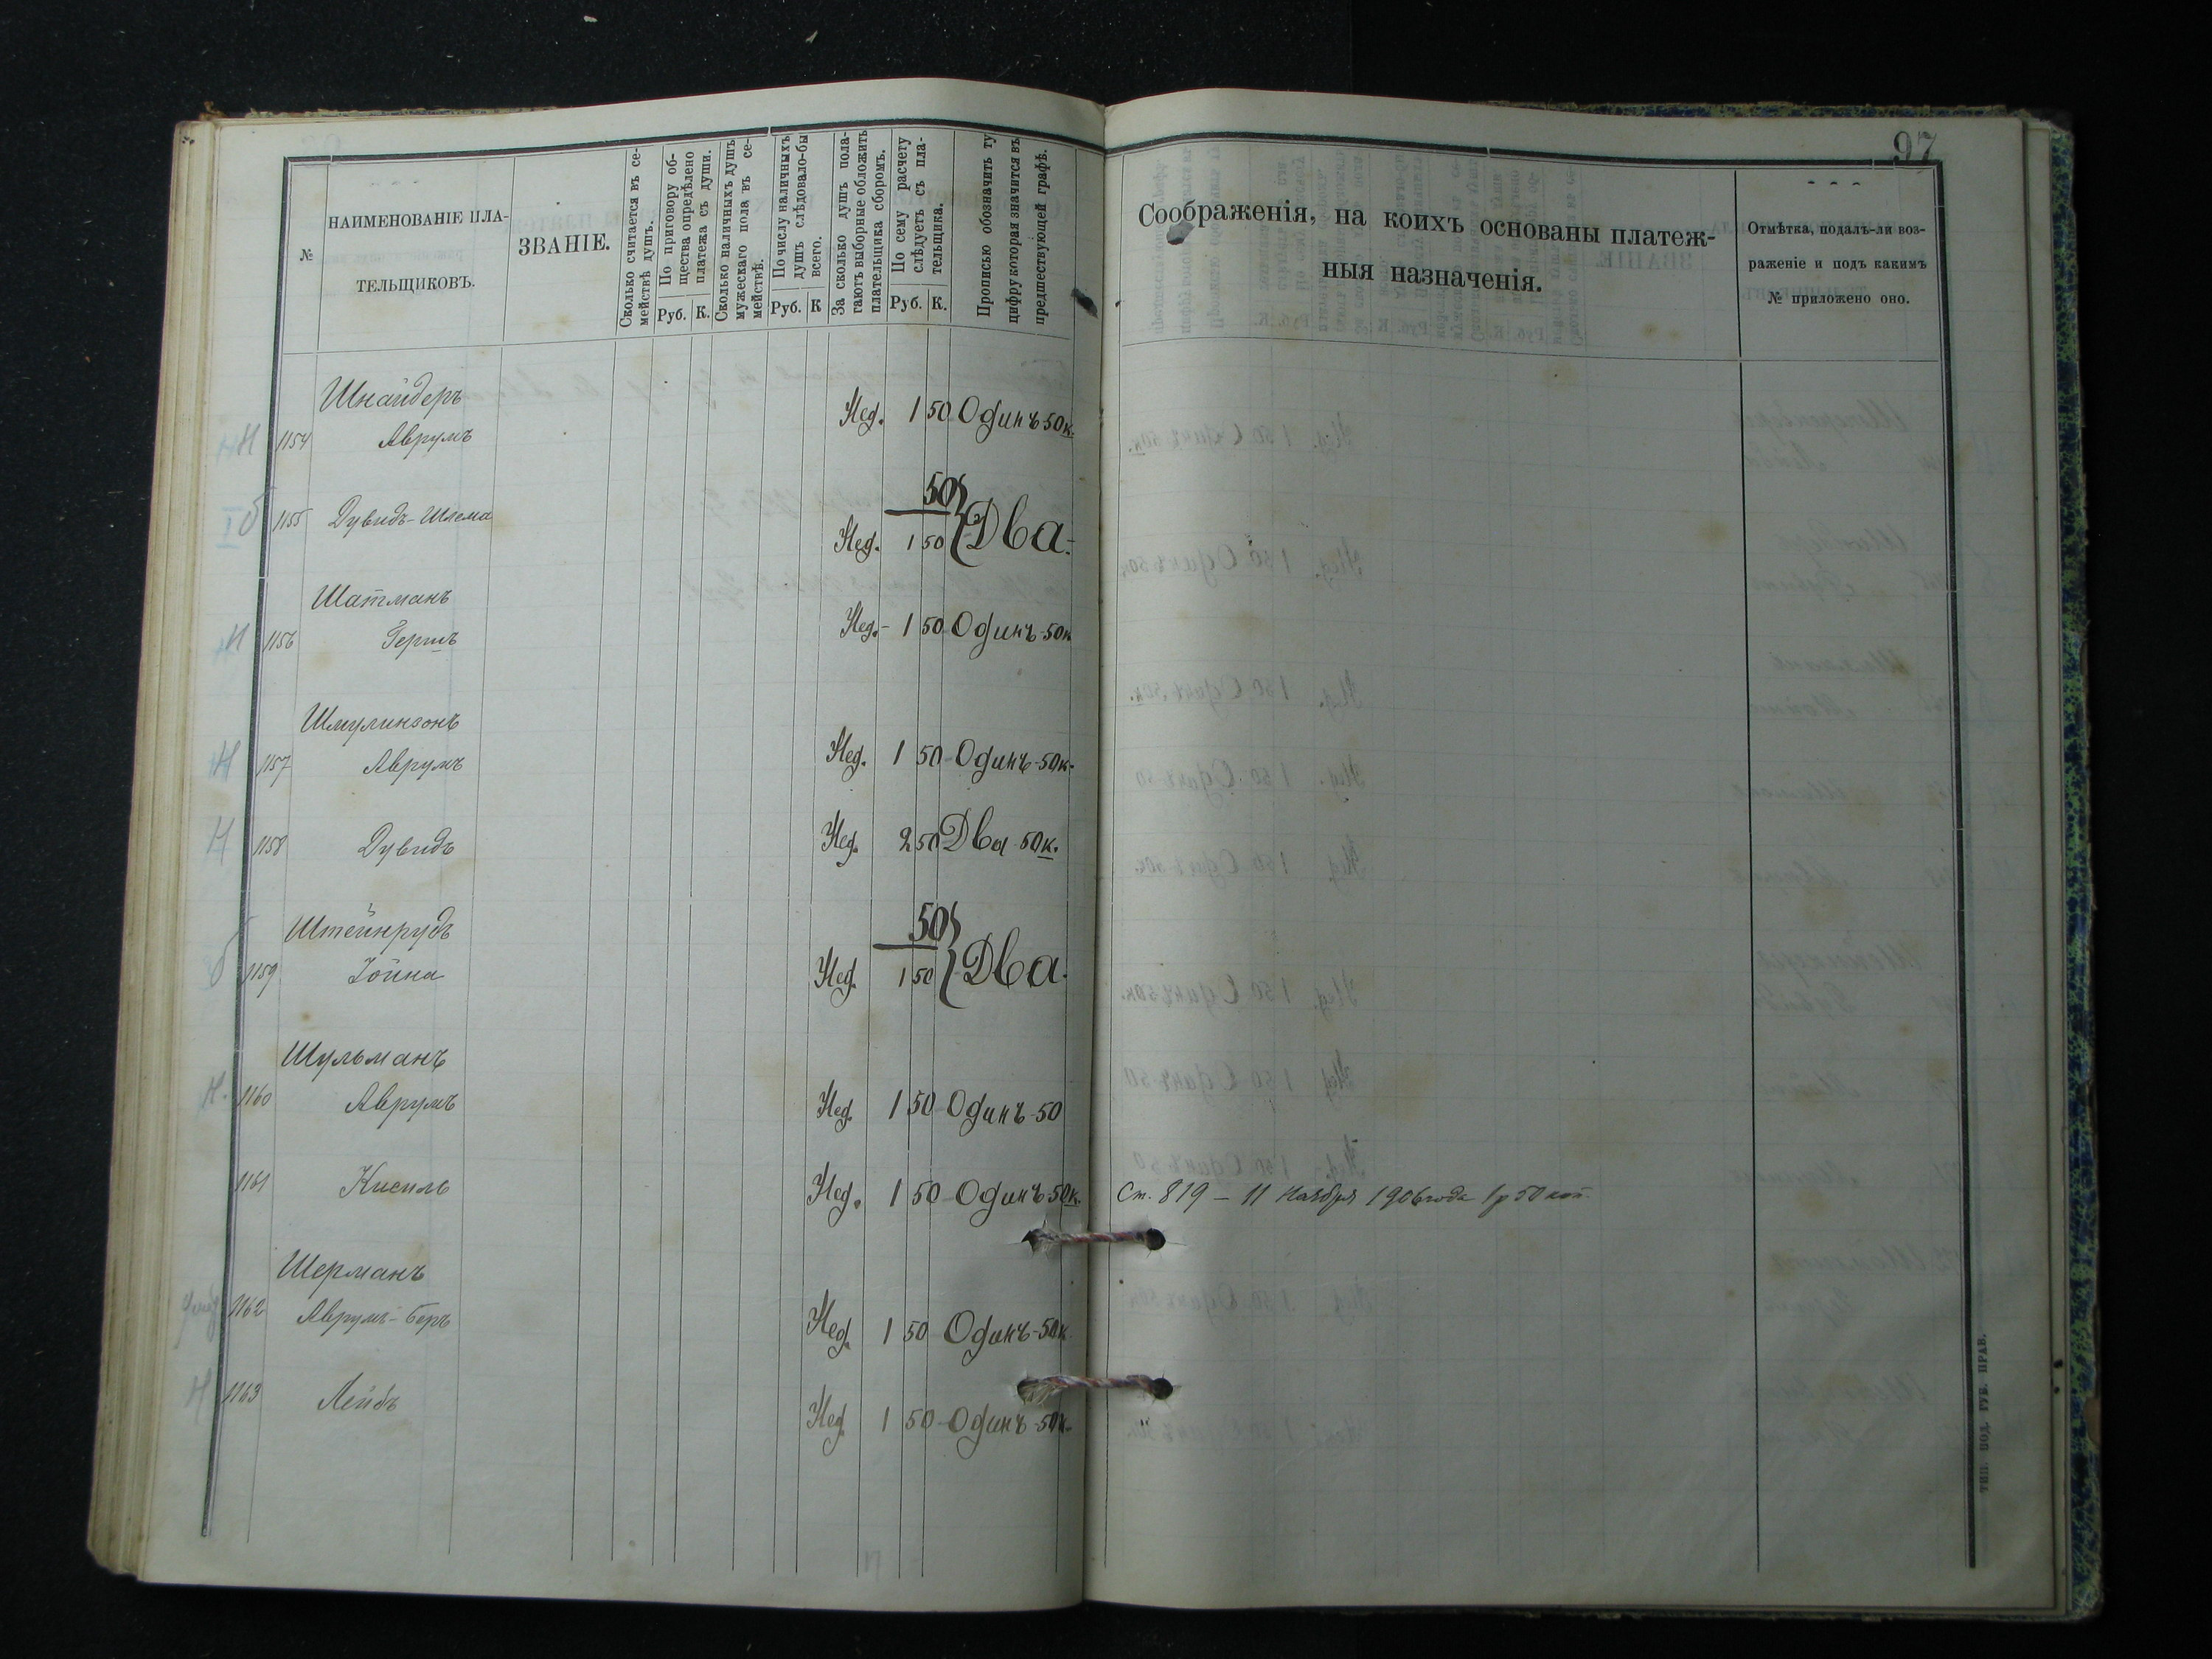 97
№
НАИМЕНОВАНІЕ ПЛА-
ТЕЛЬЩИКОВЪ.
ЗВАНІЕ.
Сколько считается въ се-
мействѣ душъ.
По приговору об-
щества опредѣлено
платежа съ души.
Руб. К.
Сколько наличныхъ душъ
мужескаго пола въ се-
мействѣ.
По числу наличныхъ
душъ слѣдовало-бы
всего.
Руб. К
За сколько душъ пола-
гаютъ выборные обложить
плательщика сборомъ.
По сему расчету
слѣдуетъ съ пла-
тельщика.
Руб. К.
Прописью обозначить ту
цифру которая значится въ
предшествующей графѣ.
Соображенія, на коихъ основаны платеж-
ныя назначенія.
Отмѣтка, подалъ-ли воз-
раженіе и подъ какимъ
№ приложено оно.
Шнайдеръ
Н 1154 Аврумъ Нед. 1 50 Одинъ 50к.
50
1155 Дувидъ-Шлема Нед. 1 50 Два
Шатманъ
Н 1156 Гершъ Нед. 1 50 Одинъ-50к
Шмулинзонъ
Н 1157 Аврумъ Нед. 1 50 Одинъ-50к.
Н 1158 Дувидъ Нед. 2 50 Два 50к.
Штейнрудъ
50
1159 Іойна Нед. 1 50 Два
Шульманъ
Н. 1160 Аврумъ Нед. 1 50 Одинъ-50
1161 Кисиль Нед. 1 50 Одинъ-50к. Ст. 819 – 11 Ноября 1906 года 1р 50 коп.
Шерманъ
1162 Аврумъ-Беръ Нед. 1 50 Одинъ-50к
Н 1163 Лейбъ Нед. 1 50 Одинъ-50к.
ТИП. ПОД. ГУБ. ПРАВ.